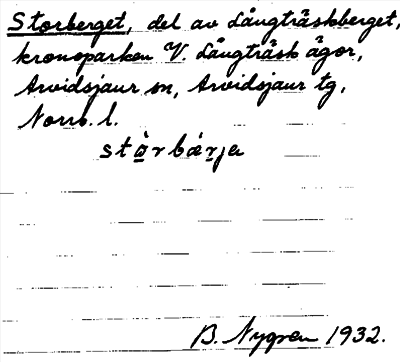 Storberget, del av Långträskberget,
kronoparken V. Långträsk ägor,
Arvidsjaur sn, Arvidsjaur tg,
Norrb. l.
stàrbárja
B. Nygren 1932.